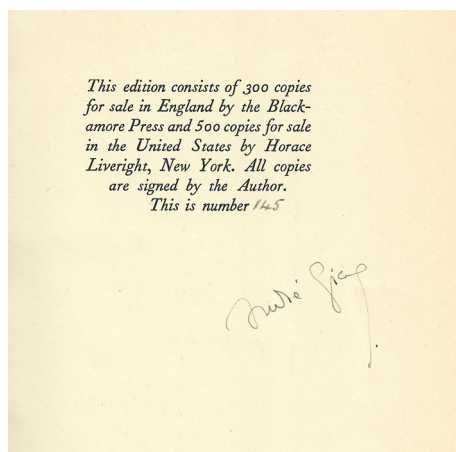 This edition consists of 300 copies
for sale in England by the Black-
amore Press and 500 copies for sale
in the United States by Horace
Liveright, New York. All copies
are signed by the Author.
This is number 145
André Gide